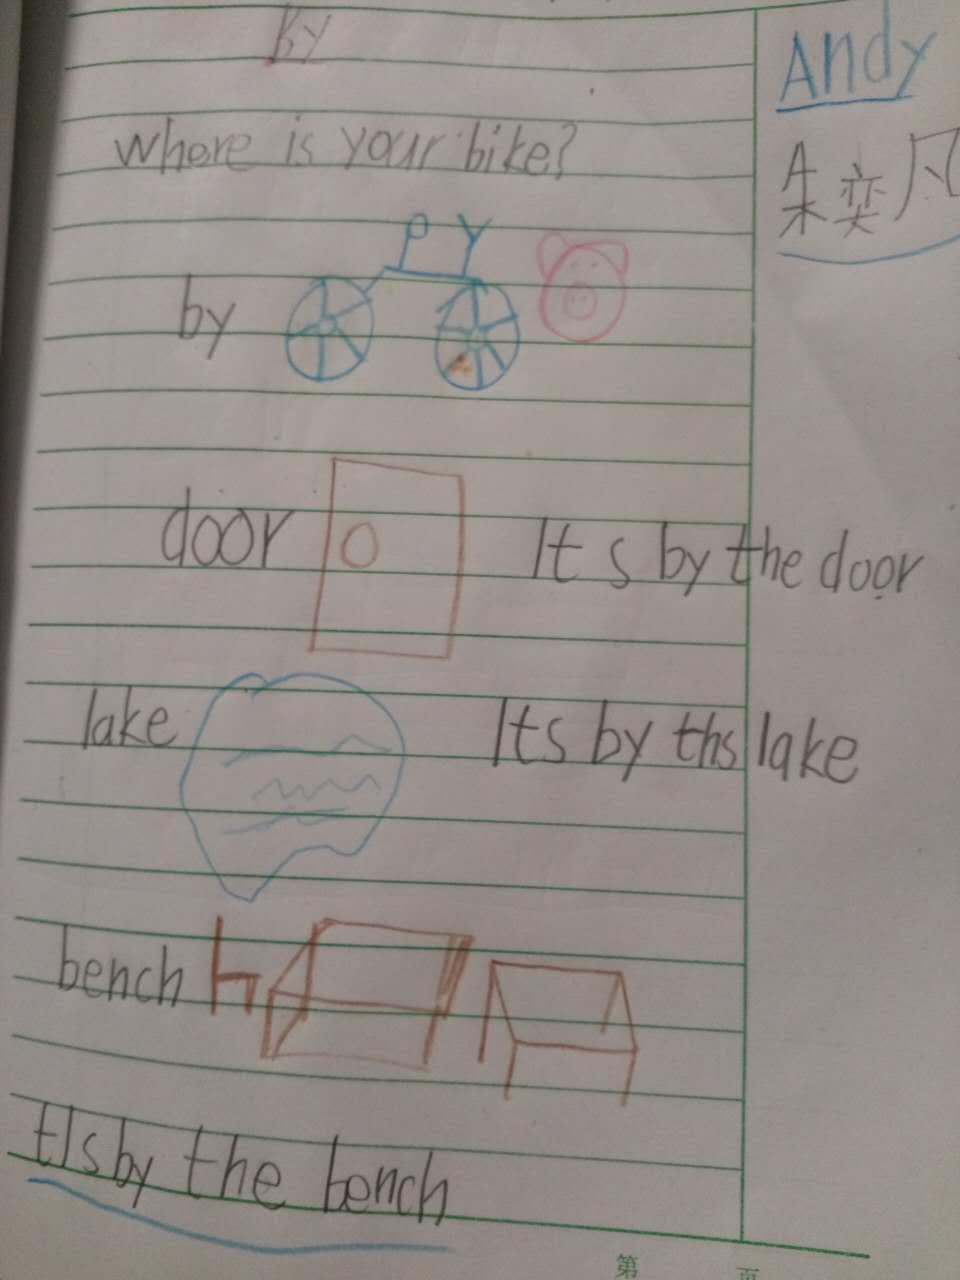 By
Andy
where is your bike?
朱奕凡
by
door It s by the door
lake Its by ths lake
bench
tIs by the bench
第 页